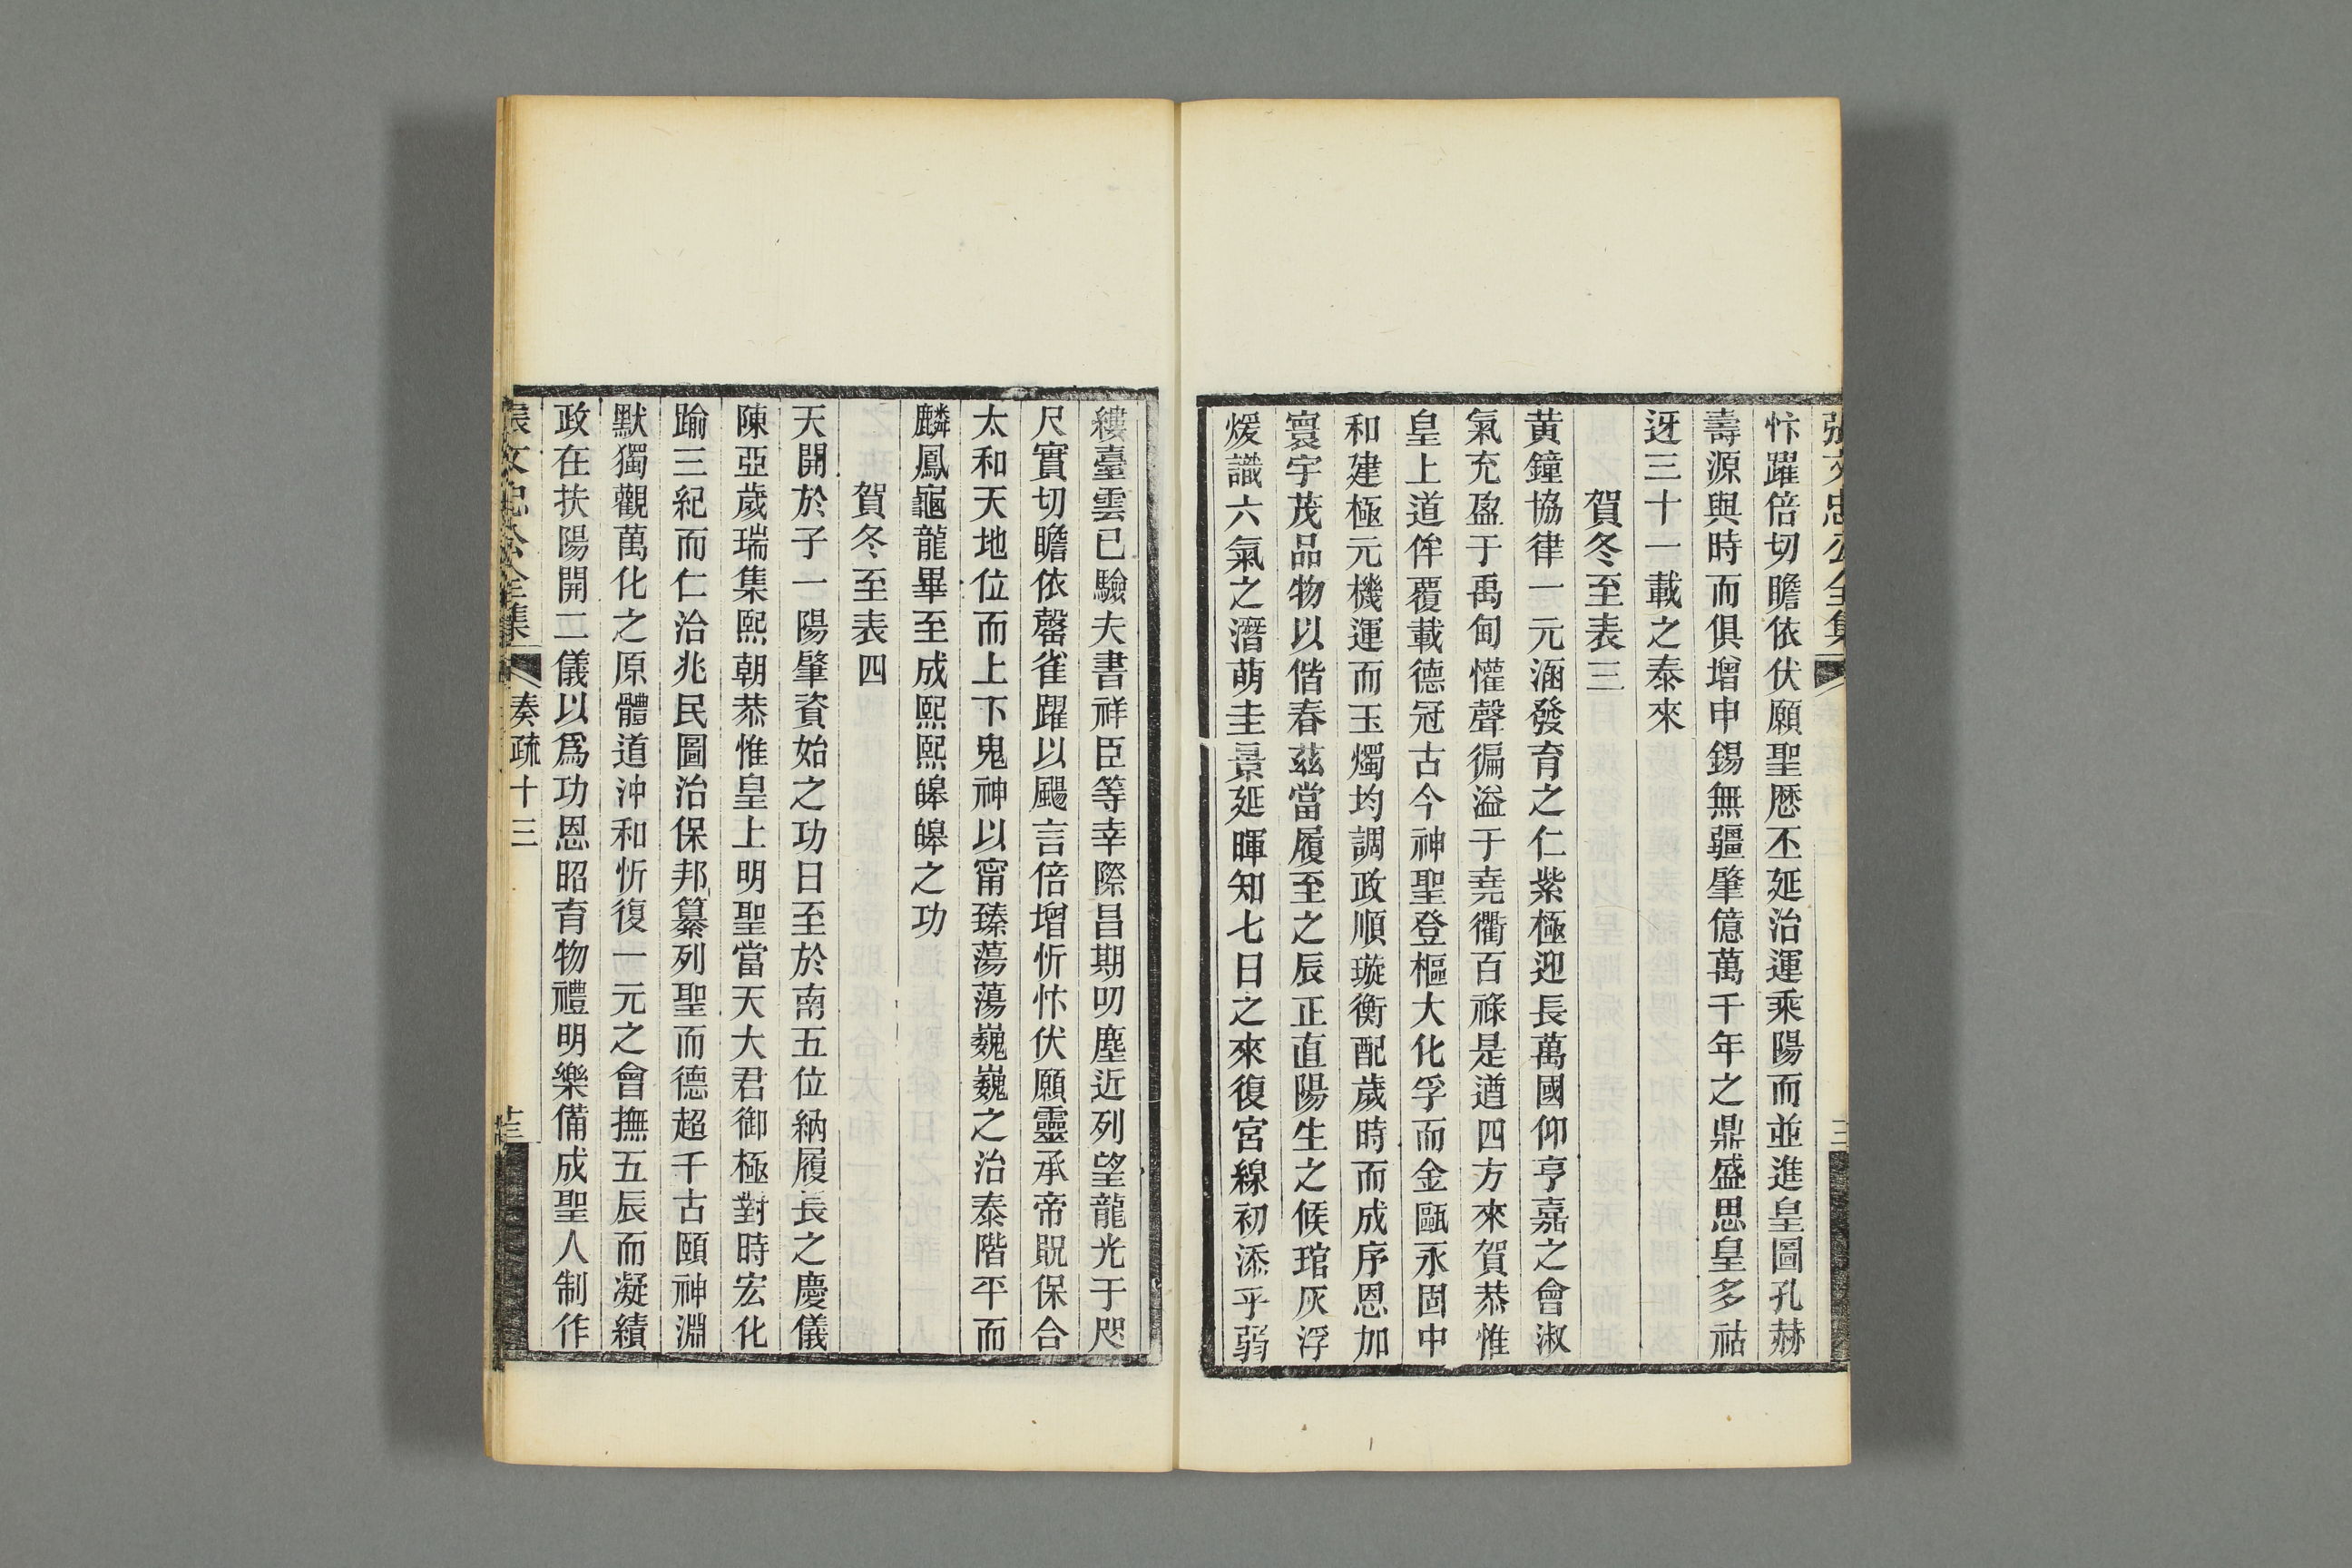 張文忠公全集
忭躍倍切瞻依伏願聖厯丕延治運乘陽而並進皇圖孔赫
壽源與時而俱增申錫無疆肇億萬千年之鼎盛思皇多祜
迓三十一載之泰來
賀冬至表三
黃鐘協律一元涵發育之仁紫極迎長萬國仰亨嘉之會淑
氣充盈于禹甸懽聲徧溢于堯衢百祿是遒四方來賀恭惟
皇上道侔覆載德冠古今神聖登樞大化孚而金甌永固中
和建極元機運而玉燭均調政順璇衡配歲時而成序恩加
寰宇茂品物以偕春茲當履至之辰正直陽生之候琯灰浮
煖識六氣之潛萌圭景延暉知七日之來復宮線初添乎弱
縷臺雲已驗夫書祥臣等幸際昌期叨塵近列望龍光于咫
尺實切瞻依罄雀躍以颺言倍增忻忭伏願靈承帝貺保合
太和天地位而上下鬼神以甯臻蕩蕩巍巍之治泰階平而
麟鳳龜龍畢至成熙熙皞皞之功
賀冬至表四
天開於子一陽肇資始之功日至於南五位納履長之慶儀
陳亞歲瑞集熙朝恭惟皇上明聖當天大君御極對時宏化
踰三紀而仁洽兆民圖治保邦纂列聖而德超千古頤神淵
默獨觀萬化之原體道沖和忻復一元之會撫五辰而凝績
政在扶陽開二儀以爲功恩昭育物禮明樂備成聖人制作
張文忠公全集
奏疏十三
十三